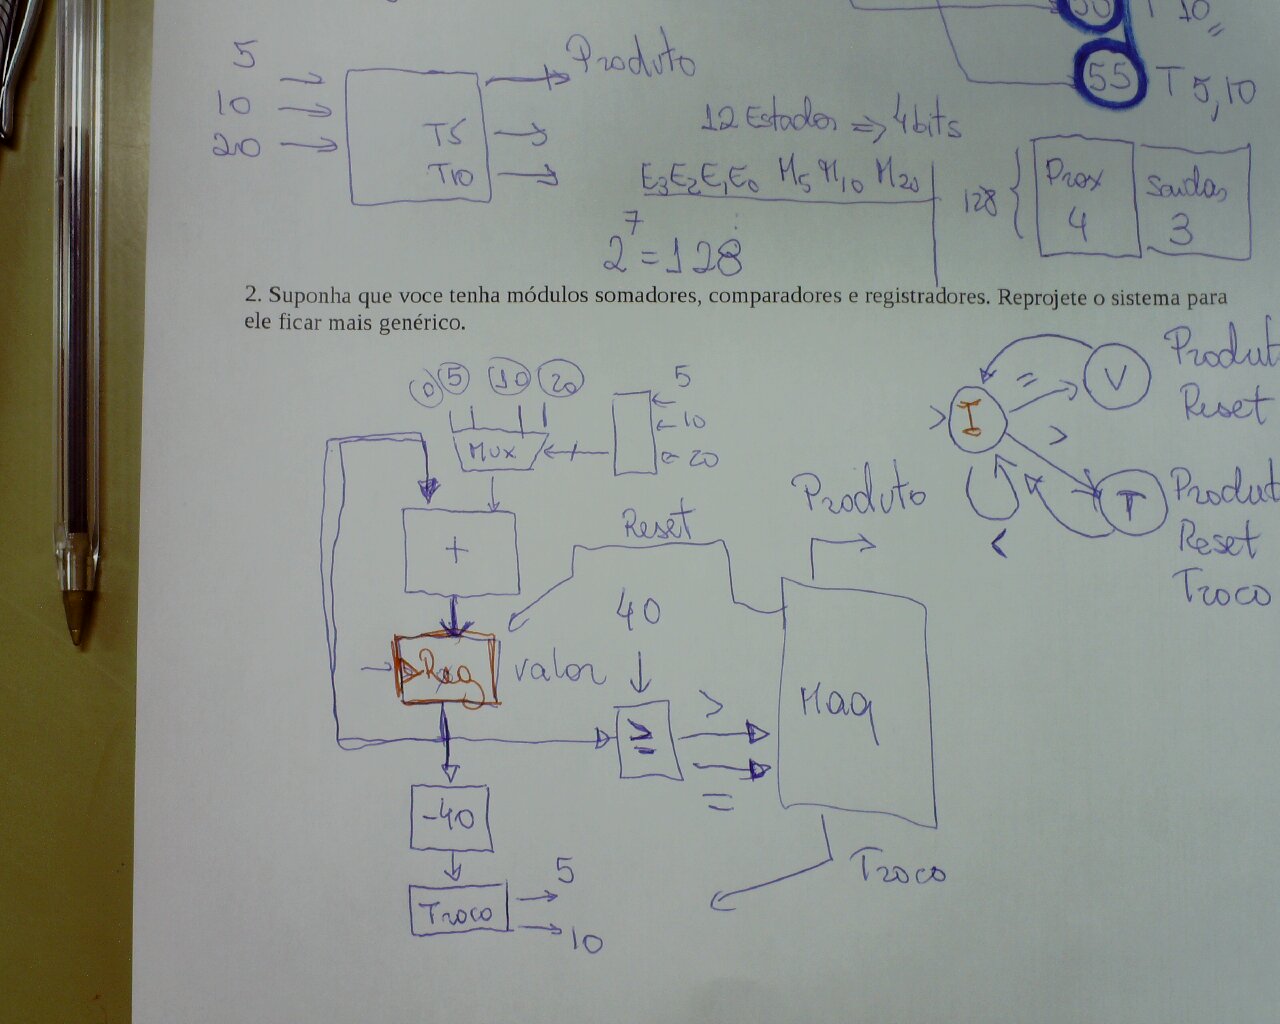 50 T 10
55 T 5,10
5
10
20
T5
T10
Produto
12 Estados => 4 bits
E3 E2 E1 E0 M5 M10 M20
2^7 = 128
128 {
Prox
4
Saidas
3
2. Suponha que voce tenha módulos somadores, comparadores e registradores. Reprojete o sistema para
ele ficar mais genérico.
0 5 10 20
MUX
5
10
20
+
Reset
Reg
valor
40
≥
>
=
Maq
Produto
Troco
-40
Troco
5
10
I
=
V
Produt
Reset
>
T
Produt
Reset
Troco
<